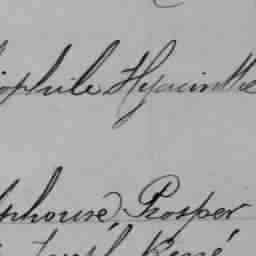 ophile Hyacinthe
phonse, Prosper
Joseph René